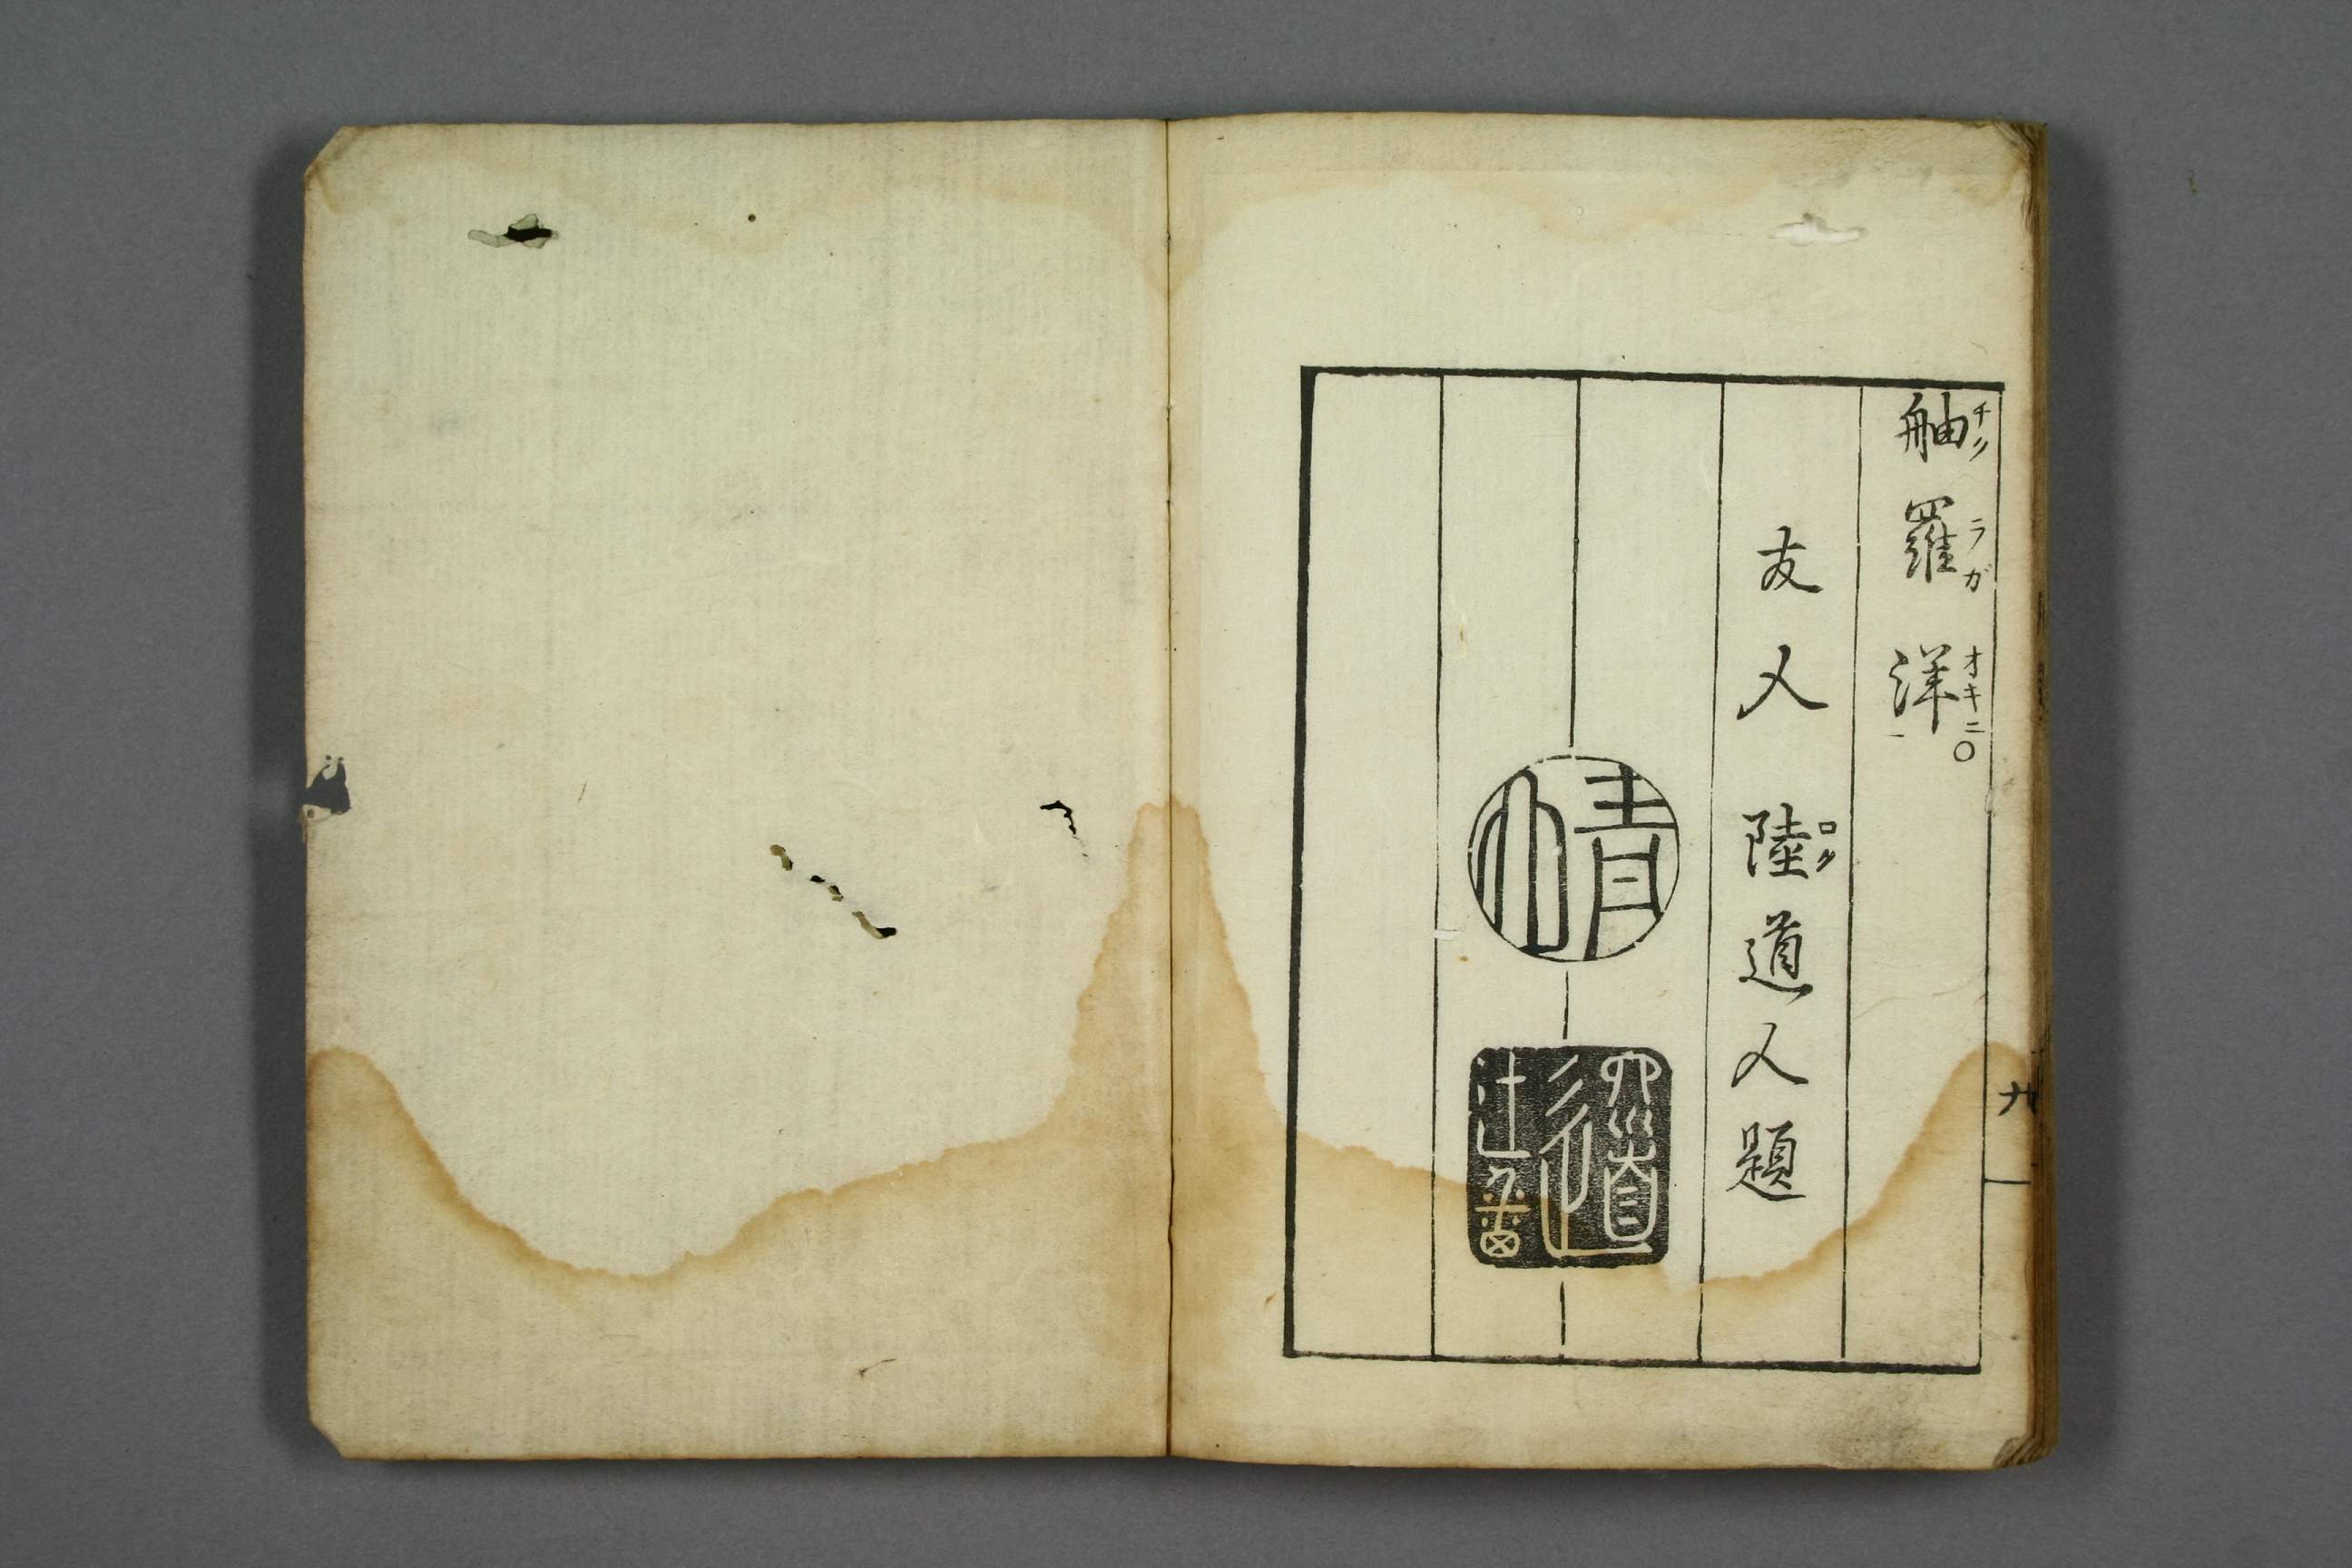 舳羅洋
チクラガオキニ〇
友人陸道人題
ロク
情